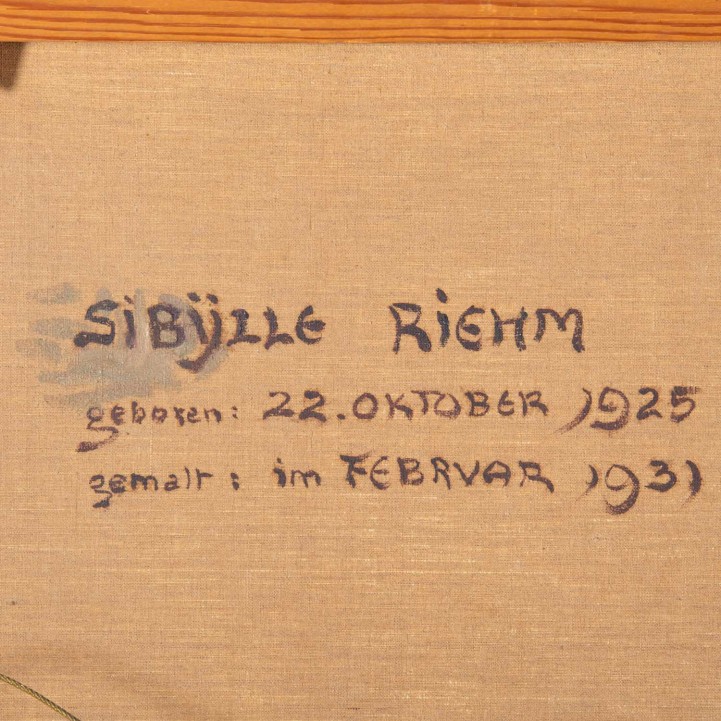 SIBŸLLE RIEHM
geboren: 22. OKTOBER 1925
gemalt: im FEBRVAR 1931